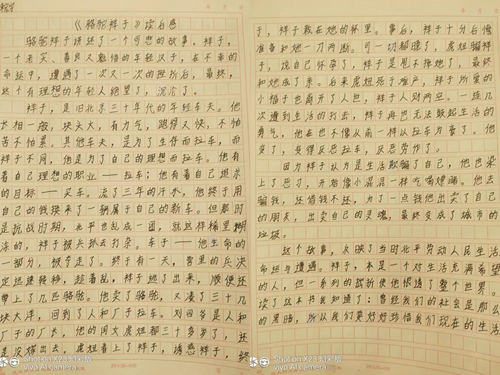 《骆驼祥子》读后感
骆驼祥子讲述了一个可悲的故事，祥子，
一个老实、善良又勤恳的年轻汉子，在不幸的
命运中，遭遇了一次又一次的挫折后，最终，
这个有理想的年轻人绝望了，沉沦了。
祥子，是旧北京三十年代的年轻车夫。他
长相一般，块头大，有力气，跑得又快，不怕
苦不怕累，其他车夫，是为了生存而拉车，而
祥子不同，他是为了自己的理想而拉车。他有
着自己理想的职业——拉车；他有着自己追求
的目标——买车。流了三年的汗水，他终于用
自己的钱换来了一辆属于自己的新车。但那时
是抗战时期，北平也乱成一团，就这样稀里糊
涂的，祥子被大兵去打杂。车子——他生命的
一部分，被夺走了。终于有一天，营里的兵决
定迅速转移，趁着乱，祥子逃了出来，顺便还
带上了几匹骆驼。他卖了骆驼，又凑了三十几
块大洋，回到了人和厂子拉车。刘四爷是人和
厂子的厂长，他的闺女虎妞都三十多岁了，还
是没嫁出去，虎妞看上了祥子，诱惑祥子，终
于，祥子栽在她的怀里。事后，祥子十分后悔
准备和她一刀两断。可一切都晚了，虎妞骗祥
子，说自己怀孕了，祥子是甩不掉她了，最终
和她成了亲。后来虎妞死于难产，祥子所爱的
小福子也离开了人世，祥子人财两空。一连几
次遭到生活的打击，祥子再也无法鼓起生活的
勇气，他在也不像从前一样以拉车为豪了。他
变了，变得厌恶拉车，厌恶劳作了。
因为祥子认为是生活欺骗了自己，他也染
上了恶习，开始像小混混一样吃喝嫖赌。他去
骗钱，还借钱不还，为了一点钱他出卖了自己
的朋友，出卖自己的灵魂，最终变成了城市的
垃圾。
这个故事，反映了当时北平劳动人民生活
命运与遭遇。祥子，本是一个对生活充满希望
的人，但一系列的挫折使他恨透了整个世界。
读了这本书我知道了：曾经我们的社会是那么
的黑暗，所以我们更好好珍惜我们现在的生活
Shot on X23 幻彩
vivo AI camera
Shot on X23 幻彩
vivo AI camera